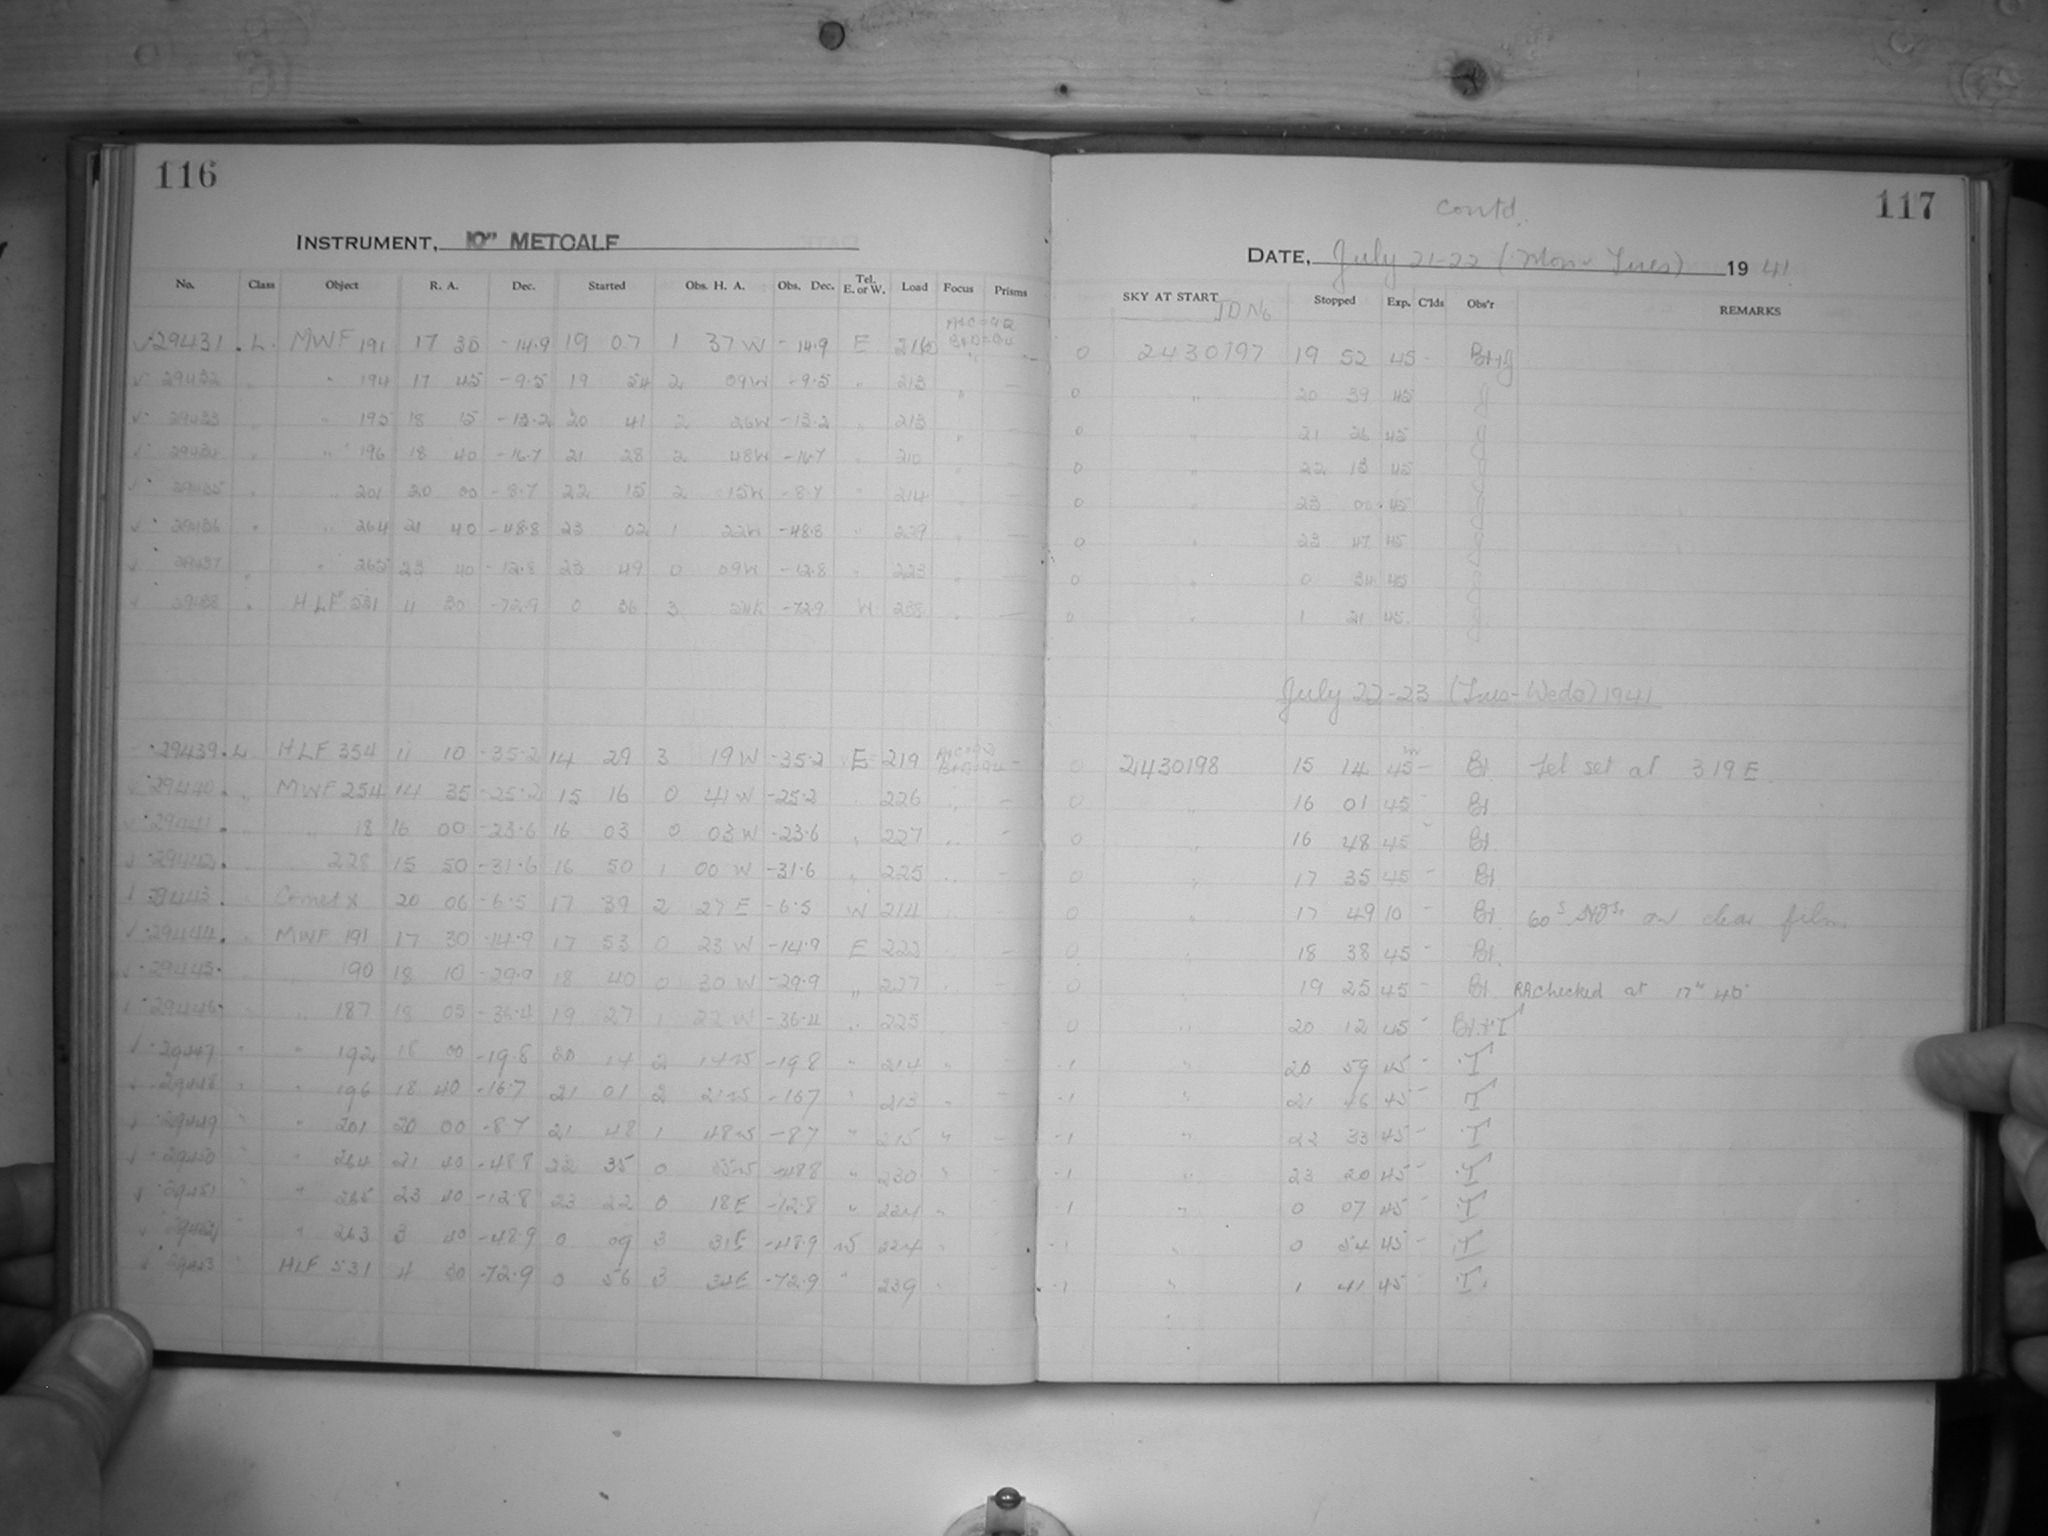 116
INSTRUMENT, 10" METCALF
No. Class Object R. A. Dec. Started Obs. H. A. Obs. Dec. Tel. E. or W. Load Focus Prisms
29431 L. MWF 191 17 30 -14.9 19 07 1 37 W -14.9 E
29432 " 194 17 45 -9.5 19 54 2 09W -9.5 " 213 " —
29433 " 195 18 15 -13.2 20 41 2 26W -13.2 " 213 " —
29434 " 196 18 40 -16.7 21 28 2 48W -16.7 " 210 " —
29435 " 201 20 00 -8.7 22 15 2 15W -8.7 " 214 " —
29436 " 264 21 40 -48.8 23 02 1 22W -48.8 " 229 " —
29437 " 265 23 40 -12.8 23 49 0 09W -12.8 " 223 " —
29438 " HLF 531 4 30 -72.9 0 36 3 -72.9 W 238 " —
29439 L HLF 354 11 10 -35.2 14 29 3 19 W -35.2 E 219
29440 " MWF 254 14 35 -25.2 15 16 0 41 W -25.2 " 226 " —
29441 " 18 16 00 -23.6 16 03 0 03 W -23.6 " 227 " —
29442 " 228 15 50 -31.6 16 50 1 00 W -31.6 " 225 " —
29443 " Comet x 20 06 -6.5 17 39 2 27 E -6.5 W 214 " —
29444 " MWF 191 17 30 -14.9 17 53 0 23 W -14.9 E 222 " —
29445 " 190 18 10 -29.9 18 40 0 30 W -29.9 " 227 " —
29446 " 187 18 05 -36.4 19 27 1 22 W -36.4 " 225 " —
29447 " " 192 18 00 -19.8 20 14 2 14W -19.8 " 214 " —
29448 " " 196 18 40 -16.7 21 01 2 21W -16.7 " 213 " —
29449 " " 201 20 00 -8.7 21 48 1 48W -8.7 " 215 " —
29450 " " 264 21 40 -48.8 22 35 0 55W -48.8 " 230 " —
29451 " " 265 23 40 -12.8 23 22 0 18E -12.8 " 224 " —
29452 " " 263 3 40 -48.9 0 09 3 31E -48.9 W 224 "
29453 " HLF 531 4 30 -72.9 0 56 3 34E -72.9 " 239 "
117
contd.
DATE, July 21-22 (Mon - Tues) 1941
SKY AT START JD No Stopped Exp. C'lds Obs'r REMARKS
0 2430197 19 52 45 - Bt+J
0 " 20 39 45 J
0 " 21 26 45 J
0 " 22 13 45 J
0 " 23 00 45 J
0 " 23 47 45 J
0 " 0 34 45 J
0 " 1 21 45 J
July 22-23 (Tues-Weds) 1941
0 2430198 15 14 45 - Bt. Tel set at 3 19 E.
0 " 16 01 45 - Bt.
0 " 16 48 45 Bt.
0 " 17 35 45 - Bt.
0 " 17 49 10 - Bt. 60s on clear film.
0 " 18 38 45 - Bt.
0 " 19 25 45 - Bt. RA Checked at 17h 45
0 " 20 12 45 - Bt+T
-1 " 20 59 45 - T
-1 " 21 46 45 - T
-1 " 22 33 45 - T
-1 " 23 20 45 - T
-1 " 0 07 45 - T
-1 " 0 54 45 - T
-1 " 1 41 45 - T.